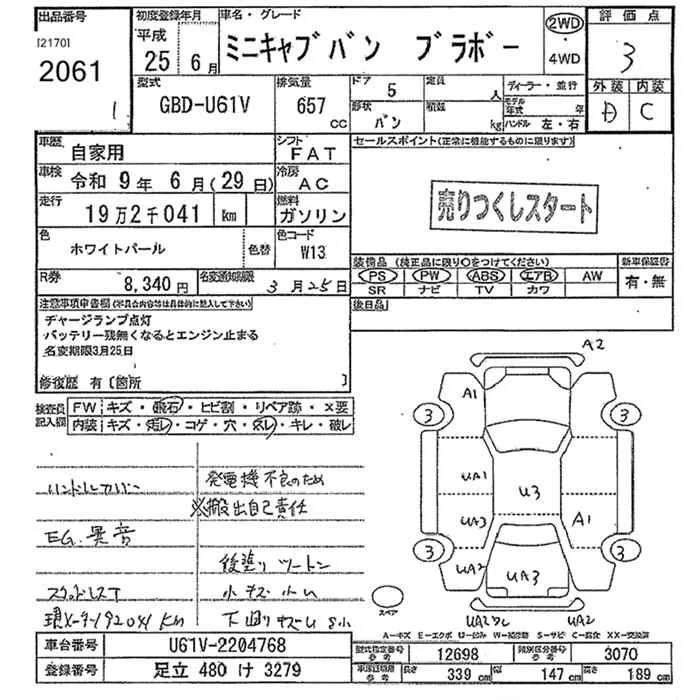 出品番号
[2170]
2061
1
初度登録年月
平成
25 6月
車名・グレード
ミニキャブバン ブラボー
2WD
4WD
評価点
3
外装 内装
D C
型式
GBD-U61V
排気量
657 CC
ドア 5
形状 バン
定員 人
積載 kg
ディーラー・並行
モデル年式 年
ハンドル 左・右
車歴 自家用
シフト FAT
車検 令和 9年 6月(29日)
冷房 AC
走行 19万2千041 km
燃料 ガソリン
色 ホワイトパール
色替
色コード W13
R券 8,340円
名変期限 3月25日
セールスポイント(正常に機能するものに限ります)
売りつくしスタート
装備品 (純正品に限り○をつけてください)
PS PW ABS エアB AW
SR ナビ TV カワ
新車保証書
有・無
後日品
注意事項申告欄(不具合内容等は具体的に記入して下さい)
チャージランプ点灯
バッテリー残無くなるとエンジン止まる
名変期限3月25日
修復歴 有〔箇所 〕
検査員記入欄
FW キズ・飛石・ヒビ割・リペア跡・×要
内装 キズ・汚レ・コゲ・穴・スレ・キレ・破レ
ハンドルカバー
EG.異音
スタッドレスT
現メーター192041km
発電機不良のため
※搬出自己責任
後塗りツートン
小キズ小U
下廻りサビS小
A2
A1
3 3
UA1
U3
UA3
A1
3 3
UA2
UA3
UA2
スペア
A-キズ E-エクボ U-凹み W-補修跡 S-サビ C-腐食 XX-交換済
車台番号 U61V-2204768
登録番号 足立 480 け 3279
型式指定番号 参考 12698
類別区分番号 参考 3070
長さ 339 cm
幅 147 cm
高さ 189 cm